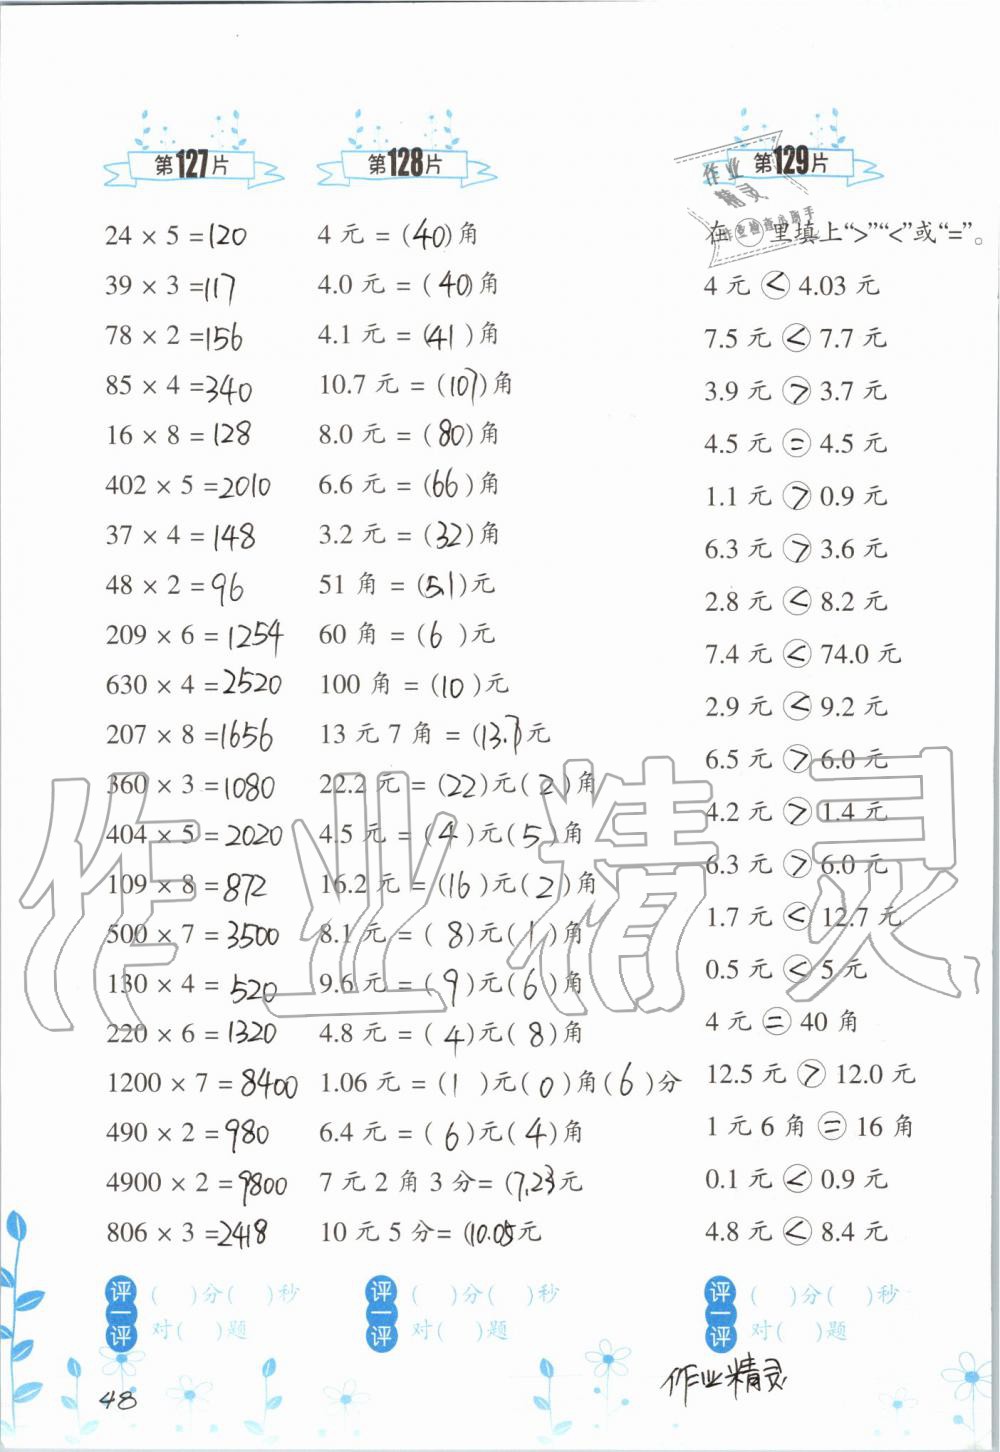 第127片
24 × 5 = 120
39 × 3 = 117
78 × 2 = 156
85 × 4 = 340
16 × 8 = 128
402 × 5 = 2010
37 × 4 = 148
48 × 2 = 96
209 × 6 = 1254
630 × 4 = 2520
207 × 8 = 1656
360 × 3 = 1080
404 × 5 = 2020
109 × 8 = 872
500 × 7 = 3500
130 × 4 = 520
220 × 6 = 1320
1200 × 7 = 8400
490 × 2 = 980
4900 × 2 = 9800
806 × 3 = 2418
评一评
( )分( )秒
对( )题
第128片
4 元 = (40)角
4.0 元 = (40)角
4.1 元 = (41)角
10.7 元 = (107)角
8.0 元 = (80)角
6.6 元 = (66)角
3.2 元 = (32)角
51 角 = (5.1)元
60 角 = (6)元
100 角 = (10)元
13 元 7 角 = (13.7)元
22.2 元 = (22)元(2)角
4.5 元 = (4)元(5)角
16.2 元 = (16)元(2)角
8.1 元 = (8)元(1)角
9.6 元 = (9)元(6)角
4.8 元 = (4)元(8)角
1.06 元 = (1)元(0)角(6)分
6.4 元 = (6)元(4)角
7 元 2 角 3 分 = (7.23)元
10 元 5 分 = (10.05)元
评一评
( )分( )秒
对( )题
第129片
在○里填上“>”“<”或“=”。
4 元 < 4.03 元
7.5 元 < 7.7 元
3.9 元 > 3.7 元
4.5 元 = 4.5 元
1.1 元 > 0.9 元
6.3 元 > 3.6 元
2.8 元 < 8.2 元
7.4 元 < 74.0 元
2.9 元 < 9.2 元
6.5 元 > 6.0 元
4.2 元 > 1.4 元
6.3 元 > 6.0 元
1.7 元 < 12.7 元
0.5 元 < 5 元
4 元 = 40 角
12.5 元 > 12.0 元
1 元 6 角 = 16 角
0.1 元 < 0.9 元
4.8 元 < 8.4 元
评一评
( )分( )秒
对( )题
作业精灵
作业检查小助手
作业精灵
作业精灵
48